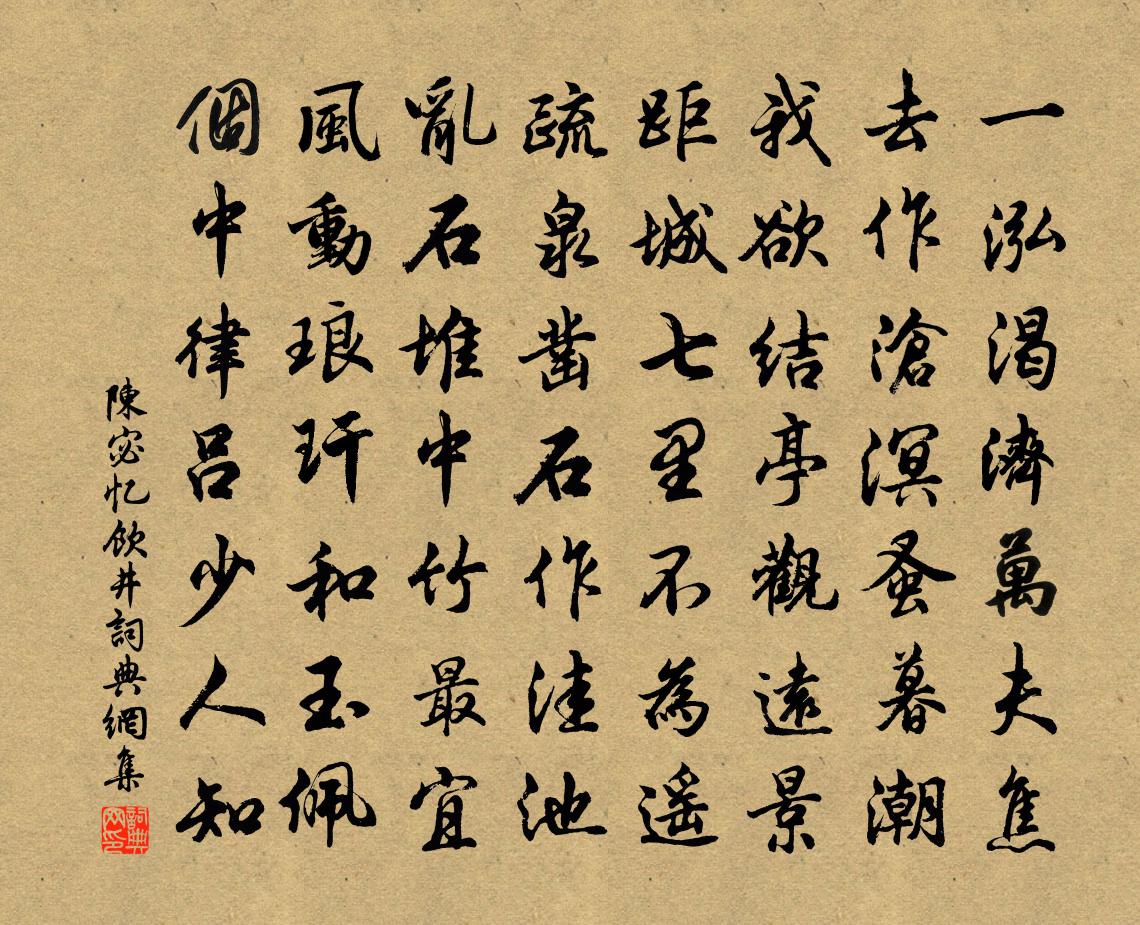 一泓渴濟萬夫焦
去作滄溟蚤暮潮
我欲結亭觀遠景
距城七里不為遥
疏泉凿石作洼池
亂石堆中竹最宜
風動琅玕和玉佩
個中律呂少人知
陳宓忆飲井詞典網集
詞典網印